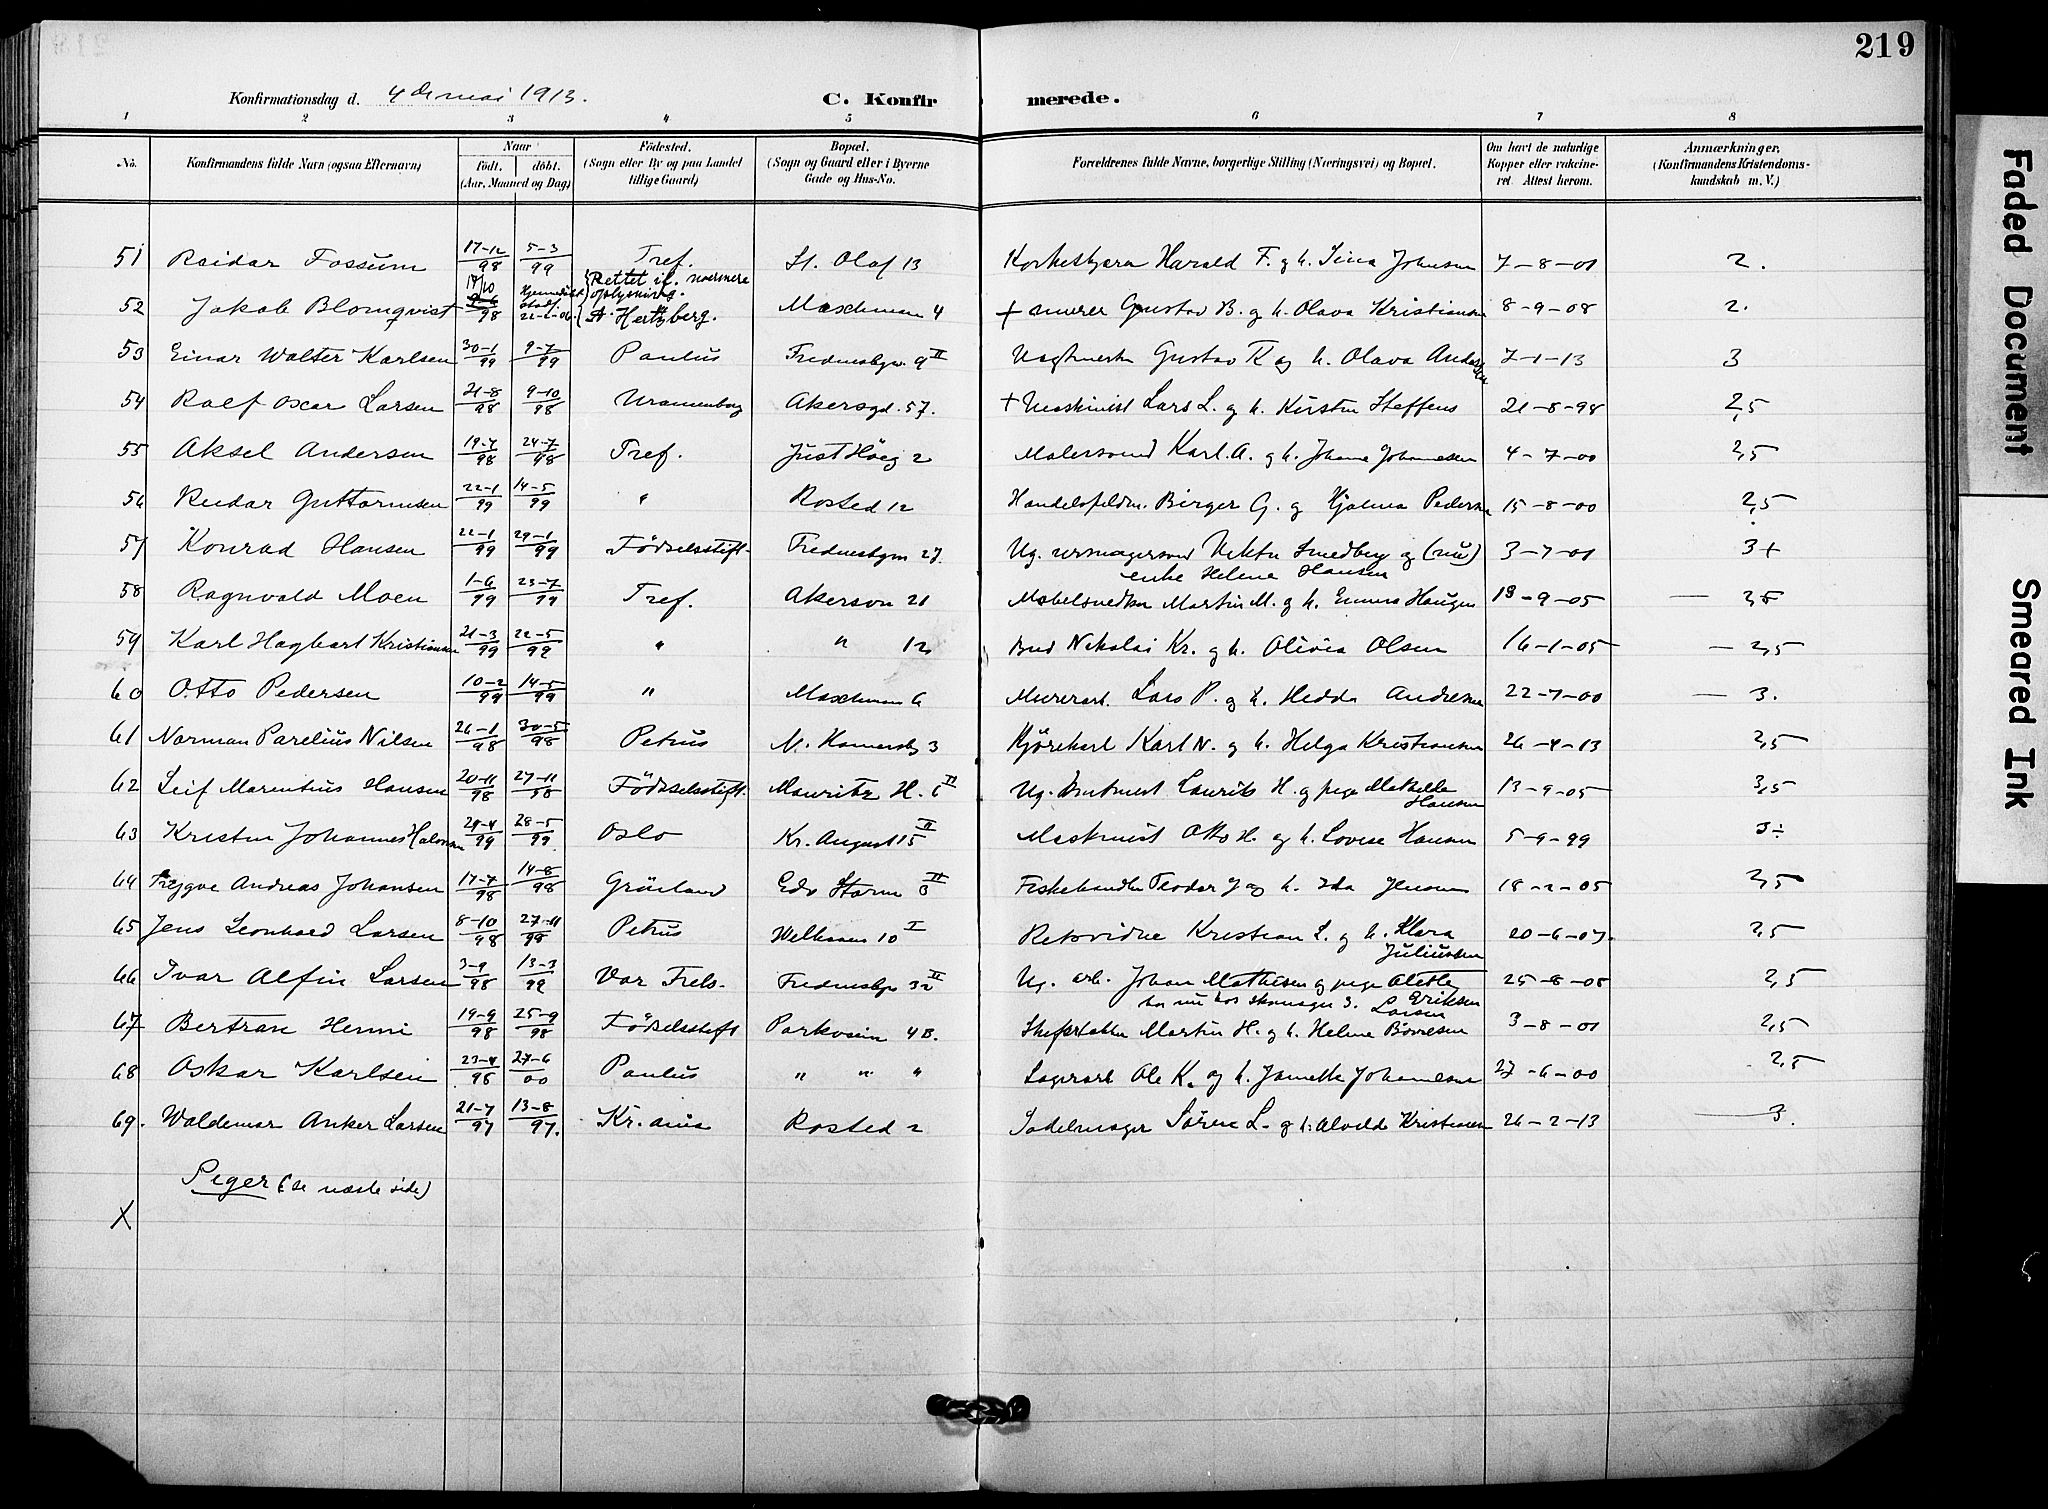 219
Konfirmationsdag d. 4de mai 1913. C. Konfirmerede.
1 2 3 4 5 6 7 8
No. Konfirmandens fulde Navn (ogsaa Efternavn) Naar födt. döbt. (Aar, Maaned og Dag) Födested. (Sogn eller By og paa Landet tillige Gaard) Bopæl. (Sogn og Gaard eller i Byerne Gade og Hus-No. Forældrenes fulde Navne, borgerlige Stilling (Næringsvei) og Bopæl. Om havt de naturlige Kopper eller vakcineret. Attest herom. Anmærkninger, (Konfirmandens Kristendomskundskab m. V.)
51 Reidar Fossum 17-12/98 5-3/99 Tref. St. Olaf 13 Harald F. g. h. Sina Johnsen 7-8-01 2.
52 Jakob Blomqvist 98 Rettet if. nærmere oplysning. Hertzberg. 4 + murer Gustav B. g. h. Olava Kristiansen 8-9-08 2.
53 Einar Walter Karlsen 30-1/99 9-7/99 Paulus Fredensbgv. 9 II Gustav K og h. Olava Andersen 7-1-13 3
54 Rolf Oscar Larsen 21-8/98 9-10/98 Uranienborg Akersgd. 57. + Maskinist Lars L. g h. Kirsten Steffens 21-8-98 2,5
55 Aksel Andersen 19-7/98 24-7/98 Tref. Just Høeg 2 Malersvend Karl A. g h. Johanne Johannesen 4-7-00 2,5
56 Reidar Guttormsen 22-1/99 14-5/99 " Rosted 12 Handelsfuldm. Birger G. g Hjalma Pedersen 15-8-00 2,5
57 Konrad Hansen 22-1/99 29-1/99 Födselsstift. Fredensbgvn 27. Ug. urmagersvend Viktor Smedberg og (nu) enke Helene Hansen 3-7-01 3+
58 Ragnvald Moen 1-6/99 23-7/99 Tref. Akersvn 21 Møbelsnedker Martin M. g h. Emma Haugen 18-9-05 — 2,5
59 Karl Hagbart Kristiansen 21-3/99 22-5/99 " " 12 Bud Nikolai Kr. g h. Olivia Olsen 16-1-05 — 2,5
60 Otto Pedersen 10-2/99 14-5/99 " 6 Murerarb. Lars P. g h. Hedda Andresen 22-7-00 — 3.
61 Norman Parelius Nilsen 26-1/98 30-5/98 Petrus 3 Kjørekarl Karl N. g h. Helga Kristiansen 26-4-13 2,5
62 Leif Marentius Hansen 20-11/98 27-11/98 Födselsstift. Mauritz H. 6 II Ug. Laurits H. g pige Mathilde Hansen 13-9-05 3,5
63 Kristen Johannes Halvorsen 29-4/99 28-5/99. Oslo Kr. August 15 II Maskinist Otto H. og h. Lovise Hansen 5-9-99 3÷
64 Trygve Andreas Johansen 17-7/98 14-8/98 Grönland Edv Storm 3 II Fiskehandler Teodor J og h. Ida Jensen 18-2-05 2,5
65 Jens Leonhard Larsen 8-10/98 27-11/98 Petrus 10 I Retsvidne Kristian L. g h. Klara Juliussen 20-6-07. 2,5
66 Ivar Alfin Larsen 3-9/98 13-3/99 Vor Frels. 32 II Ug. arb. Johan Mathisen g pige Eriksen bor nu hos skomager J. Larsen 25-8-08 2,5
67 Bertran Henni 19-9/98 25-9/98 Födselsstift Parkveien 4B. Martin H. g h. Helene Børresen 3-8-01 2,5
68 Oskar Karlsen 23-4/98 27-6/00 Paulus " " " Lagerarb Ole K. og h. Johannesen 27-6-00 2,5
69. Waldemar Anker Larsen 21-7/97 13-8/97. Kr.ania Rosted 2 Sadelmager Sörine L. g h. Alvilde Kristiansen 26-2-13 — 3.
Piger (se næste side)
X
Faded Document
Smeared Ink